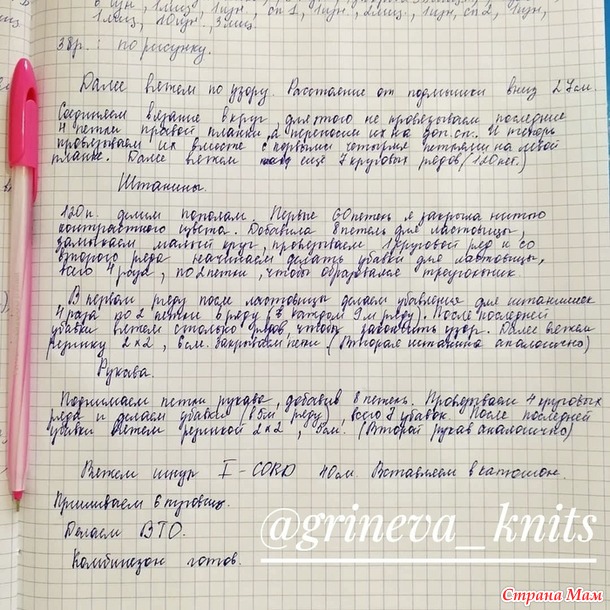 6 изн, 1 лиц, 1 изн, сп 1, 1 изн, 2 лиц, 1 изн, сп 2, 1 изн,
1 лиц, 10 изн, 3 лиц
38р.: по рисунку.
Далее вяжем по узору. Расстояние от подмышки вниз 27см.
Соединяем вязание в круг, для этого не провязываем последние
4 петли правой планки, а переносим их на доп.сп. И теперь
провязываем их вместе с первыми четырмя петлями на левой
планке. Далее вяжем ещё 7 круговых рядов (120пет.)
Штанины.
120п. делим пополам. Первые 60 петель я закрыла нитью
контрастного цвета. Добавила 8 петель для ластовицы,
замыкаем малый круг, провязываем 1 круговой ряд и со
второго ряда начинаем делать убавки для ластовицы,
всего 4 раза, по 2 петли, чтобы образовался треугольник.
В первом ряду после ластовицы делаем убавления для штанишек
4 раза по 2 петли в ряду (в каждом 9м ряду). После последней
убавки вяжем столько рядов, чтобы закончить узор. Далее вяжем
резинку 2х2, 6см. Закрываем петли (Вторая штанина аналогично)
Рукава.
Поднимаем петли рукава, добавив 8 петель. Провязываем 4 круговых
ряда и делаем убавки (в 5м ряду), всего убавок. После последней
убавки вяжем резинкой 2х2, 5см. (Второй рукав аналогично)
Вяжем шнур I-CORD 40см. Вставляем в капюшон.
Пришиваем 6 пуговиц.
Делаем ВТО.
Комбинезон готов.
@grineva_knits
Страна Мам